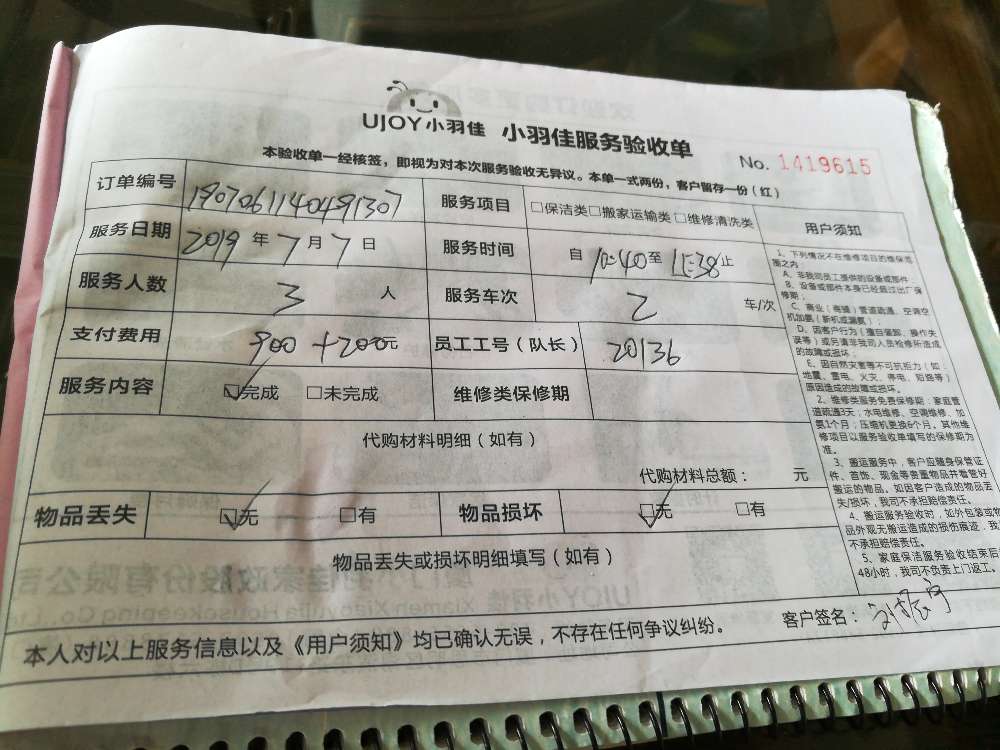 UJOY小羽佳 小羽佳服务验收单
No. 1419615
本验收单一经核签，即视为对本次服务验收无异议。本单一式两份，客户留存一份（红）
订单编号 1907061140491307 服务项目 □保洁类□搬家运输类□维修清洗类
服务日期 2019 年 7 月 7 日 服务时间 自 10:40 至 11:38 止
服务人数 3 人 服务车次 2 车/次
支付费用 900+200元 员工工号（队长） 20136
服务内容 ☑完成 □未完成 维修类保修期
代购材料明细（如有）
代购材料总额： 元
物品丢失 ☑无 □有 物品损坏 ☑无 □有
物品丢失或损坏明细填写（如有）
本人对以上服务信息以及《用户须知》均已确认无误，不存在任何争议纠纷。
客户签名：
用户须知
1、下列情况不在维修项目的维保范
围之内
A、非我司员工提供的设备或部件；
B、设备或部件本身已经超过出厂保
修期；
C、商业（商铺）管道疏通、空调空
机加氨（新机或漏氨）；
D、因客户行为（擅自装卸、操作失
误等）或另请非我司人员检修所造成
的故障或损坏；
E、因自然灾害等不可抗拒力（如：
地震、雷电、火灾、停电、短路等）
原因造成的故障或损坏。
2、维修类服务免费保修期：家庭管
道疏通3天；水电维修、空调维修、加
氨1个月；压缩机更换6个月。其他维
修项目以服务验收单填写的保修期为
准。
3、搬运服务中，客户应随身保管证
件、首饰、现金等贵重物品并看管好
搬运的物品。如因客户造成的物品丢
失/损坏，我司不承担赔偿责任。
4、搬运服务验收时，如外包装或物
品外观无搬运造成的损伤痕迹，我
不承担赔偿责任。
5、家庭保洁服务验收结束后
48小时，我司不负责上门返工。